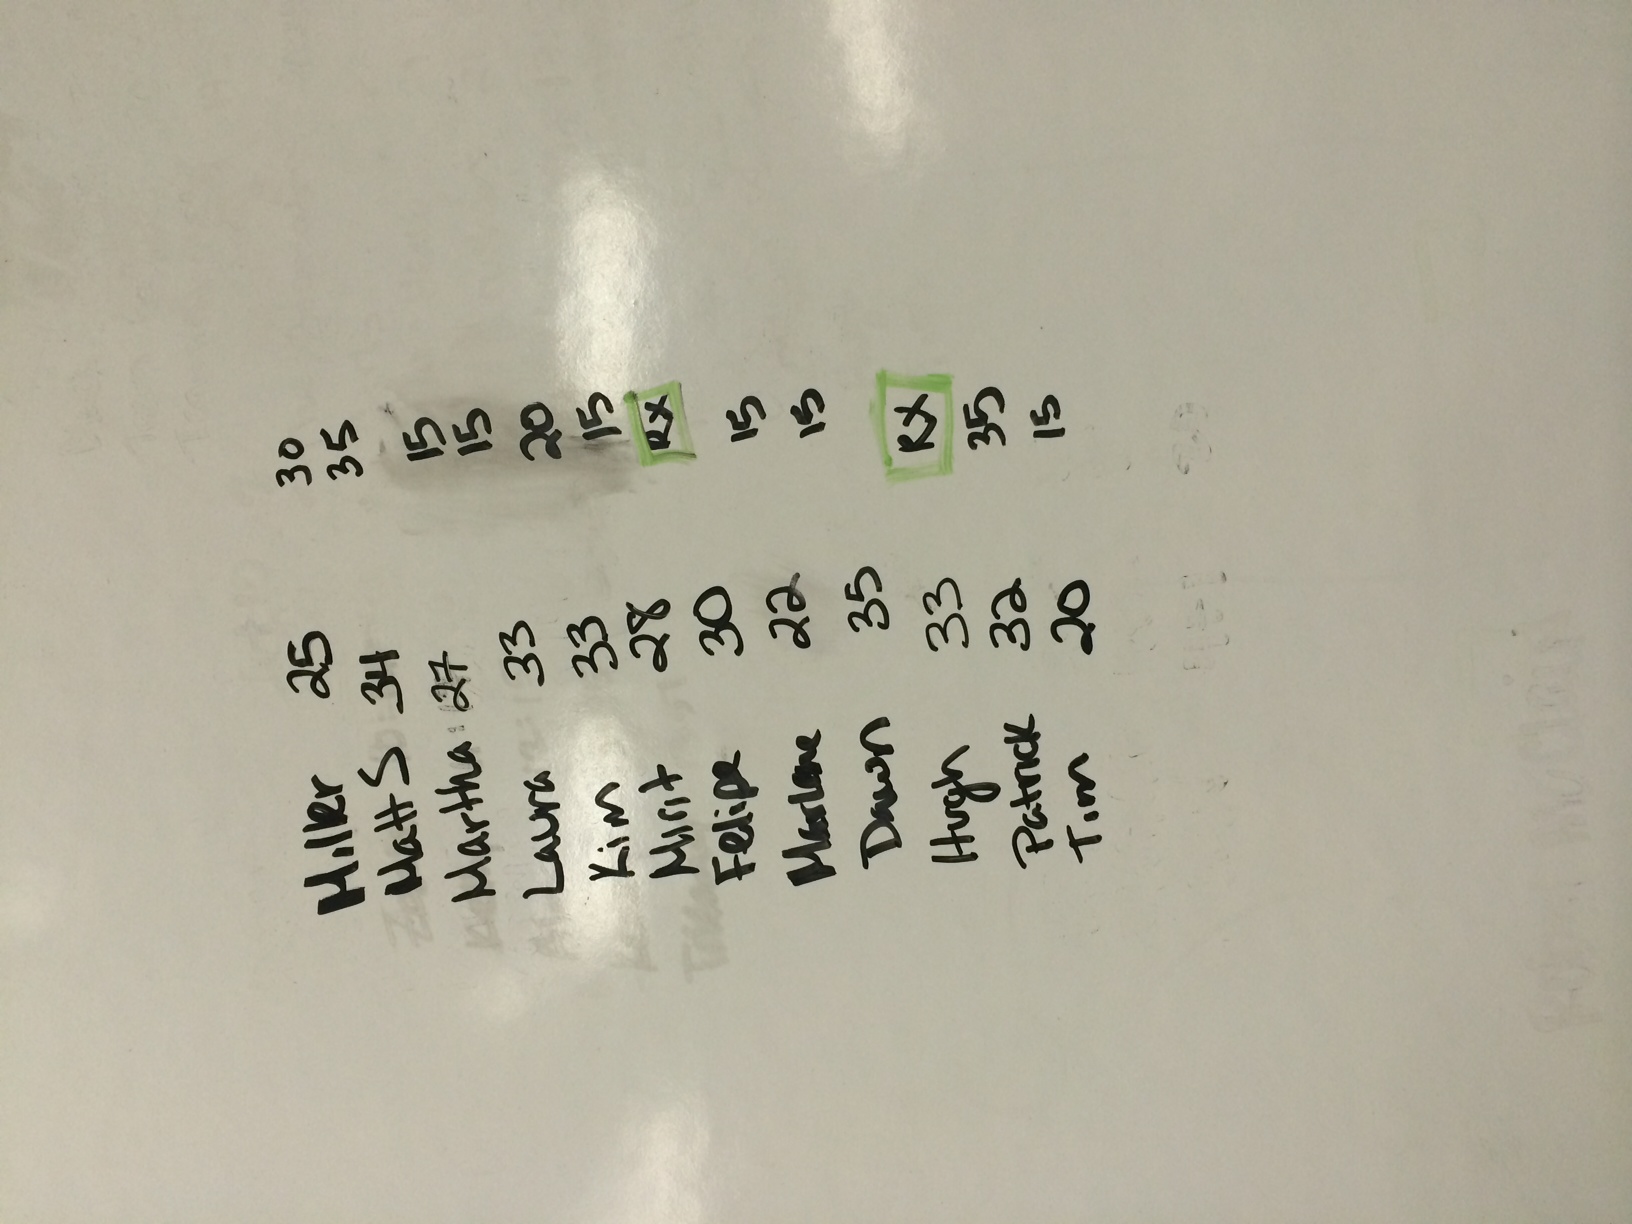 Miller 25 30
Matt S 34 35
Martha : 27 15
Laura 33 15
Kim 33 20
Mirit 28 15
Felipe 30 RX
Marlene 22 15
Dawn 35 15
Hugh 33 RX
Patrick 32 35
Tim 20 15